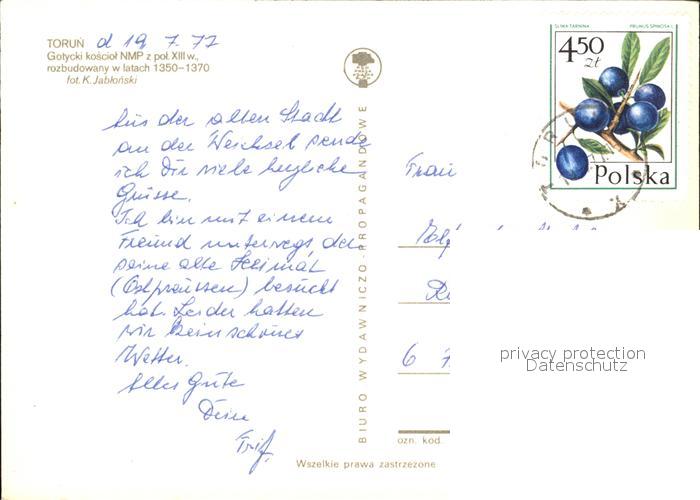 TORUŃ d 19.7.77
Gotycki kościół NMP z poł. XIII w.,
rozbudowany w latach 1350–1370
fot. K. Jabłoński
Aus der alten Stadt
an der Weichsel sende
ich Dir viele herzliche
Grüsse.
Ich bin mit einem
Freund unterwegs, der
seine alte Heimat
(Ostpreussen) besucht
hat. Leider hatten
wir kein schönes
Wetter.
Alles Gute
Dein
BIURO WYDAWNICZO-PROPAGANDOWE
ŚLIWA TARNINA PRUNUS SPINOSA L.
4,50
zł
Polska
Frau
6
privacy protection
Datenschutz
ozn. kod.
Wszelkie prawa zastrzeżone